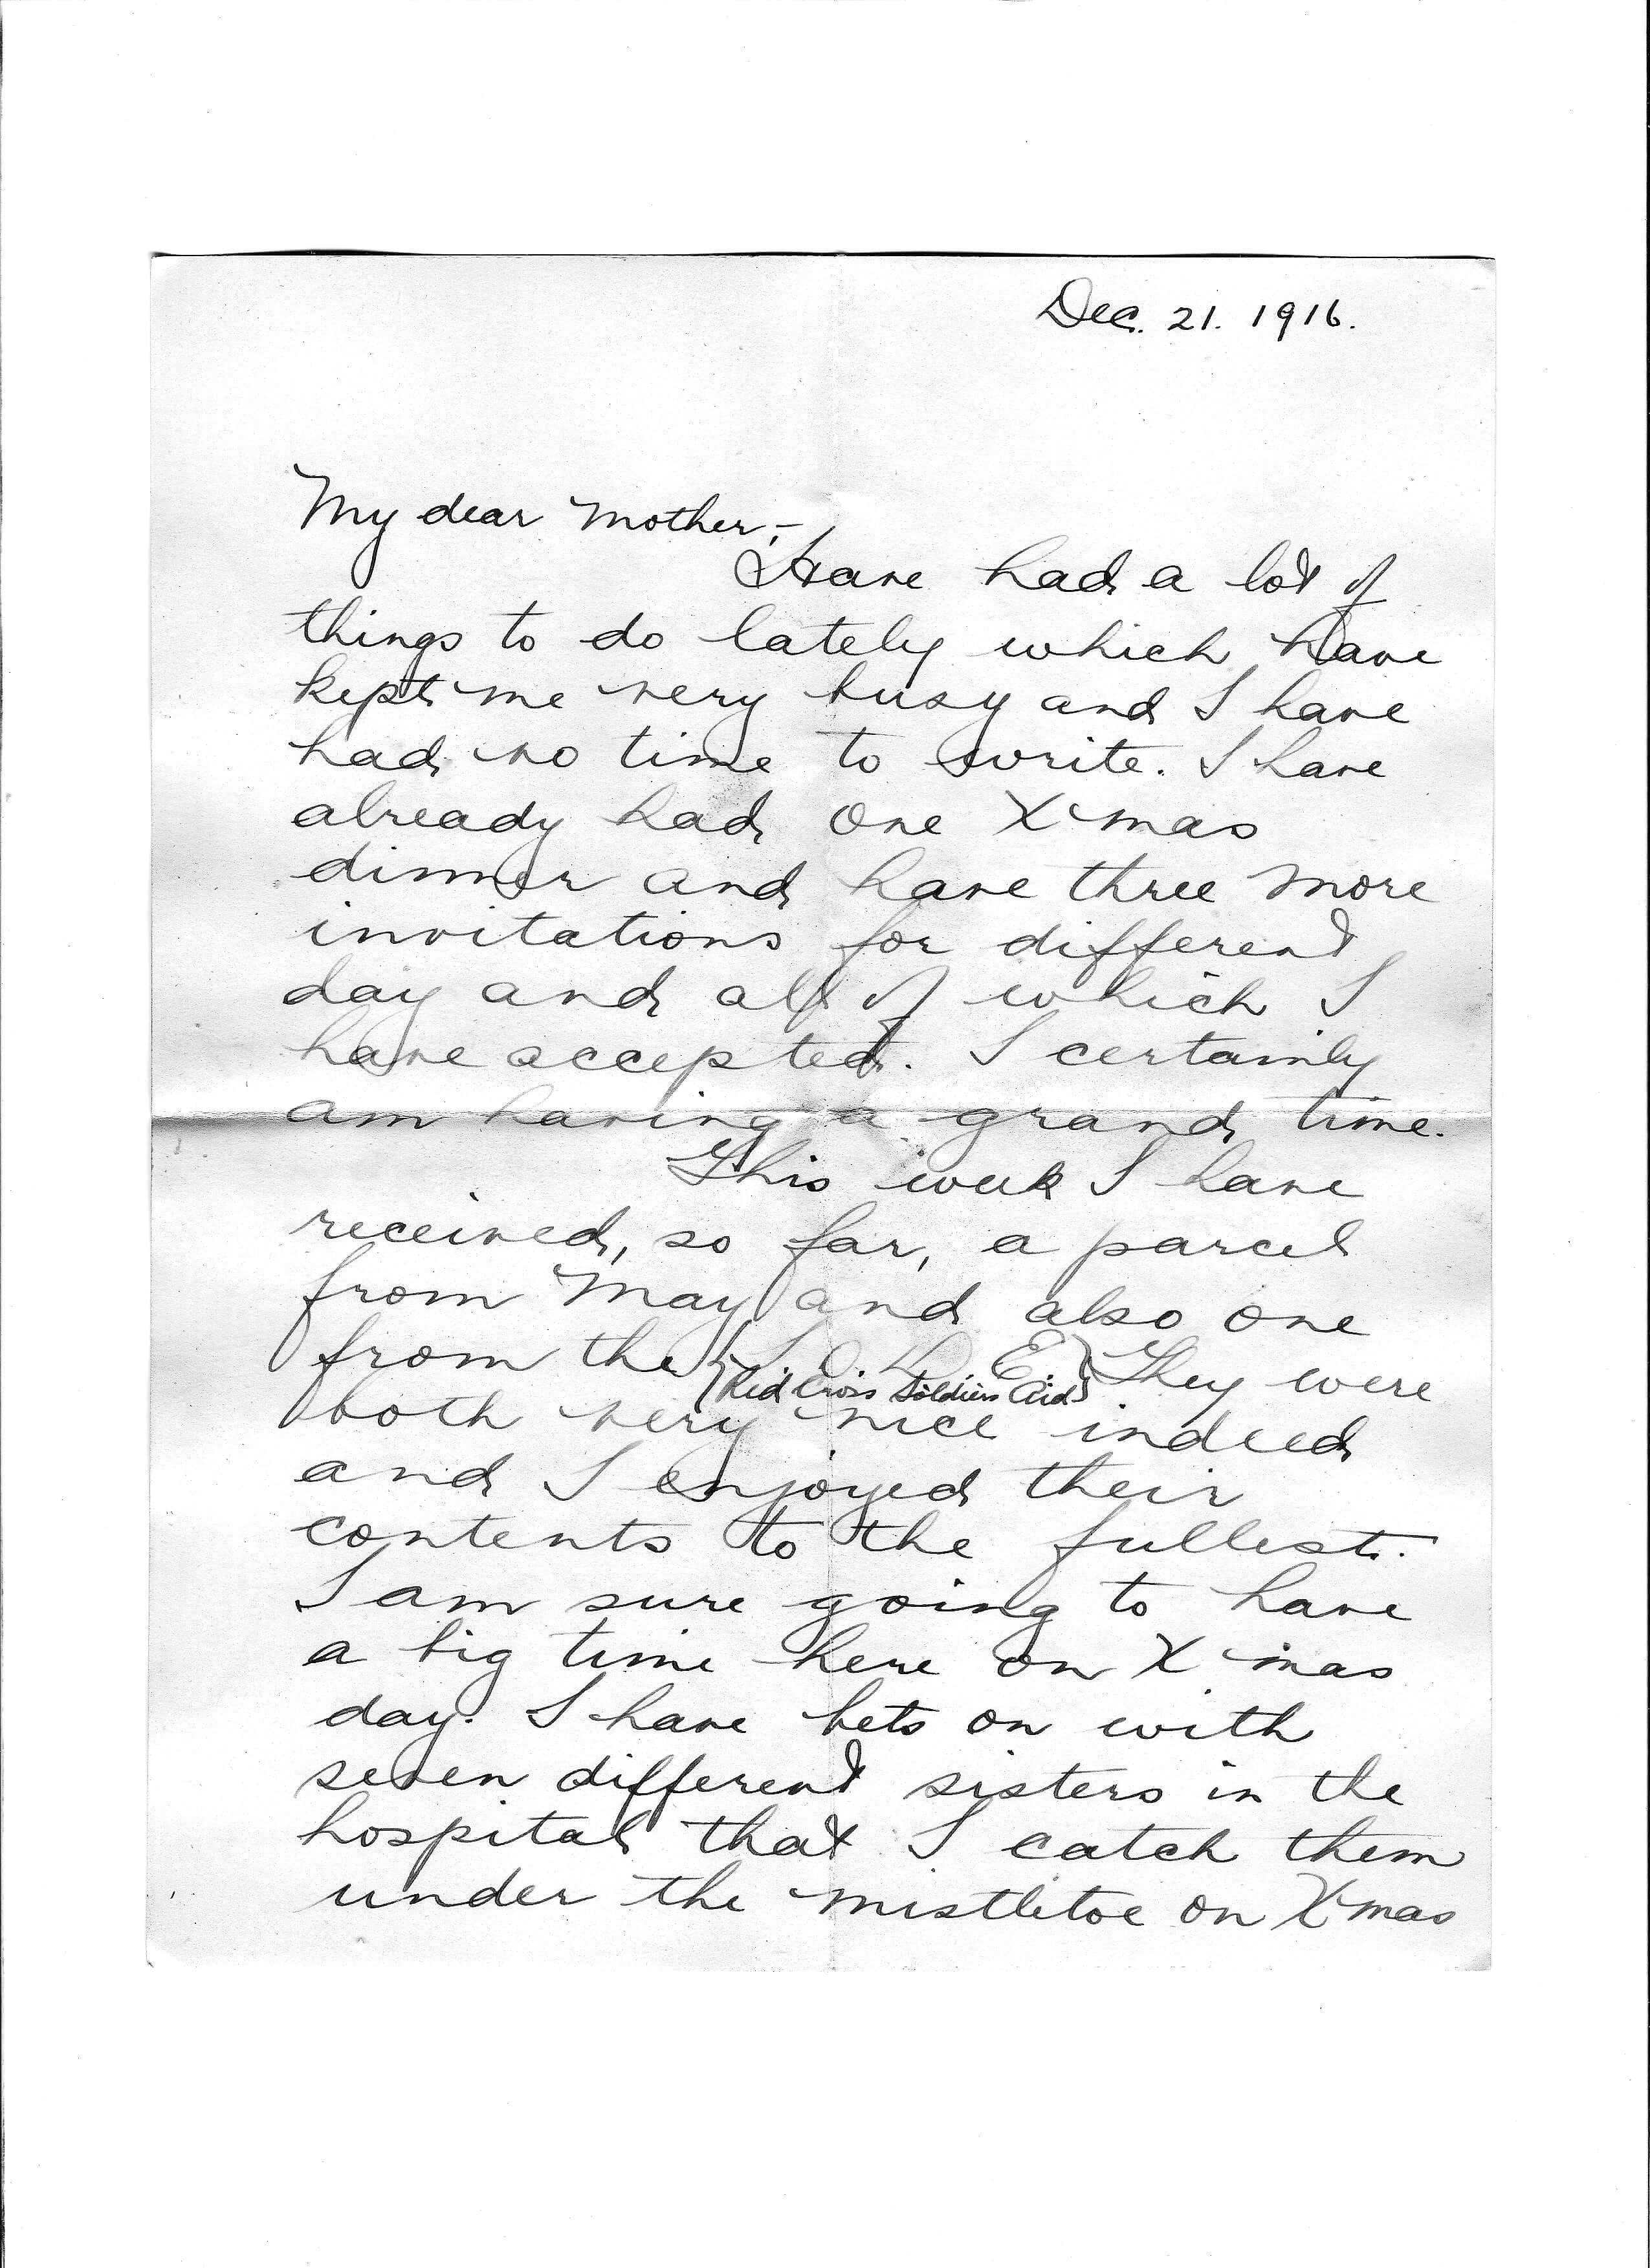 Dec. 21. 1916.
My dear Mother,-
Have had a lot of
things to do lately which have
kept me very busy and I have
had no time to write. I have
already had one X mas
dinner and have three more
invitations for different
day and all of which I
have accepted. I certainly
am having a grand time.
This week I have
received, so far, a parcel
from May and also one
from the {I O D E} They were
(Red Cross Soldiers Aid)
both very nice indeed
and I enjoyed their
contents to the fullest.
I am sure going to have
a big time here on X mas
day. I have bets on with
seven different sisters in the
hospital that I catch them
under the mistletoe on X mas